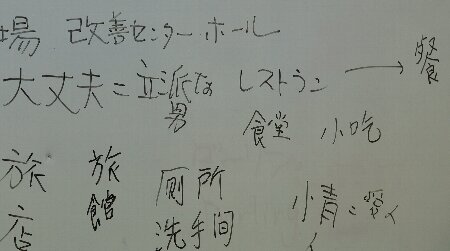 場 改善センターホール
大丈夫=立派な男 レストラン→餐
食堂 小吃
旅店 旅館 厠所
洗手間
情=